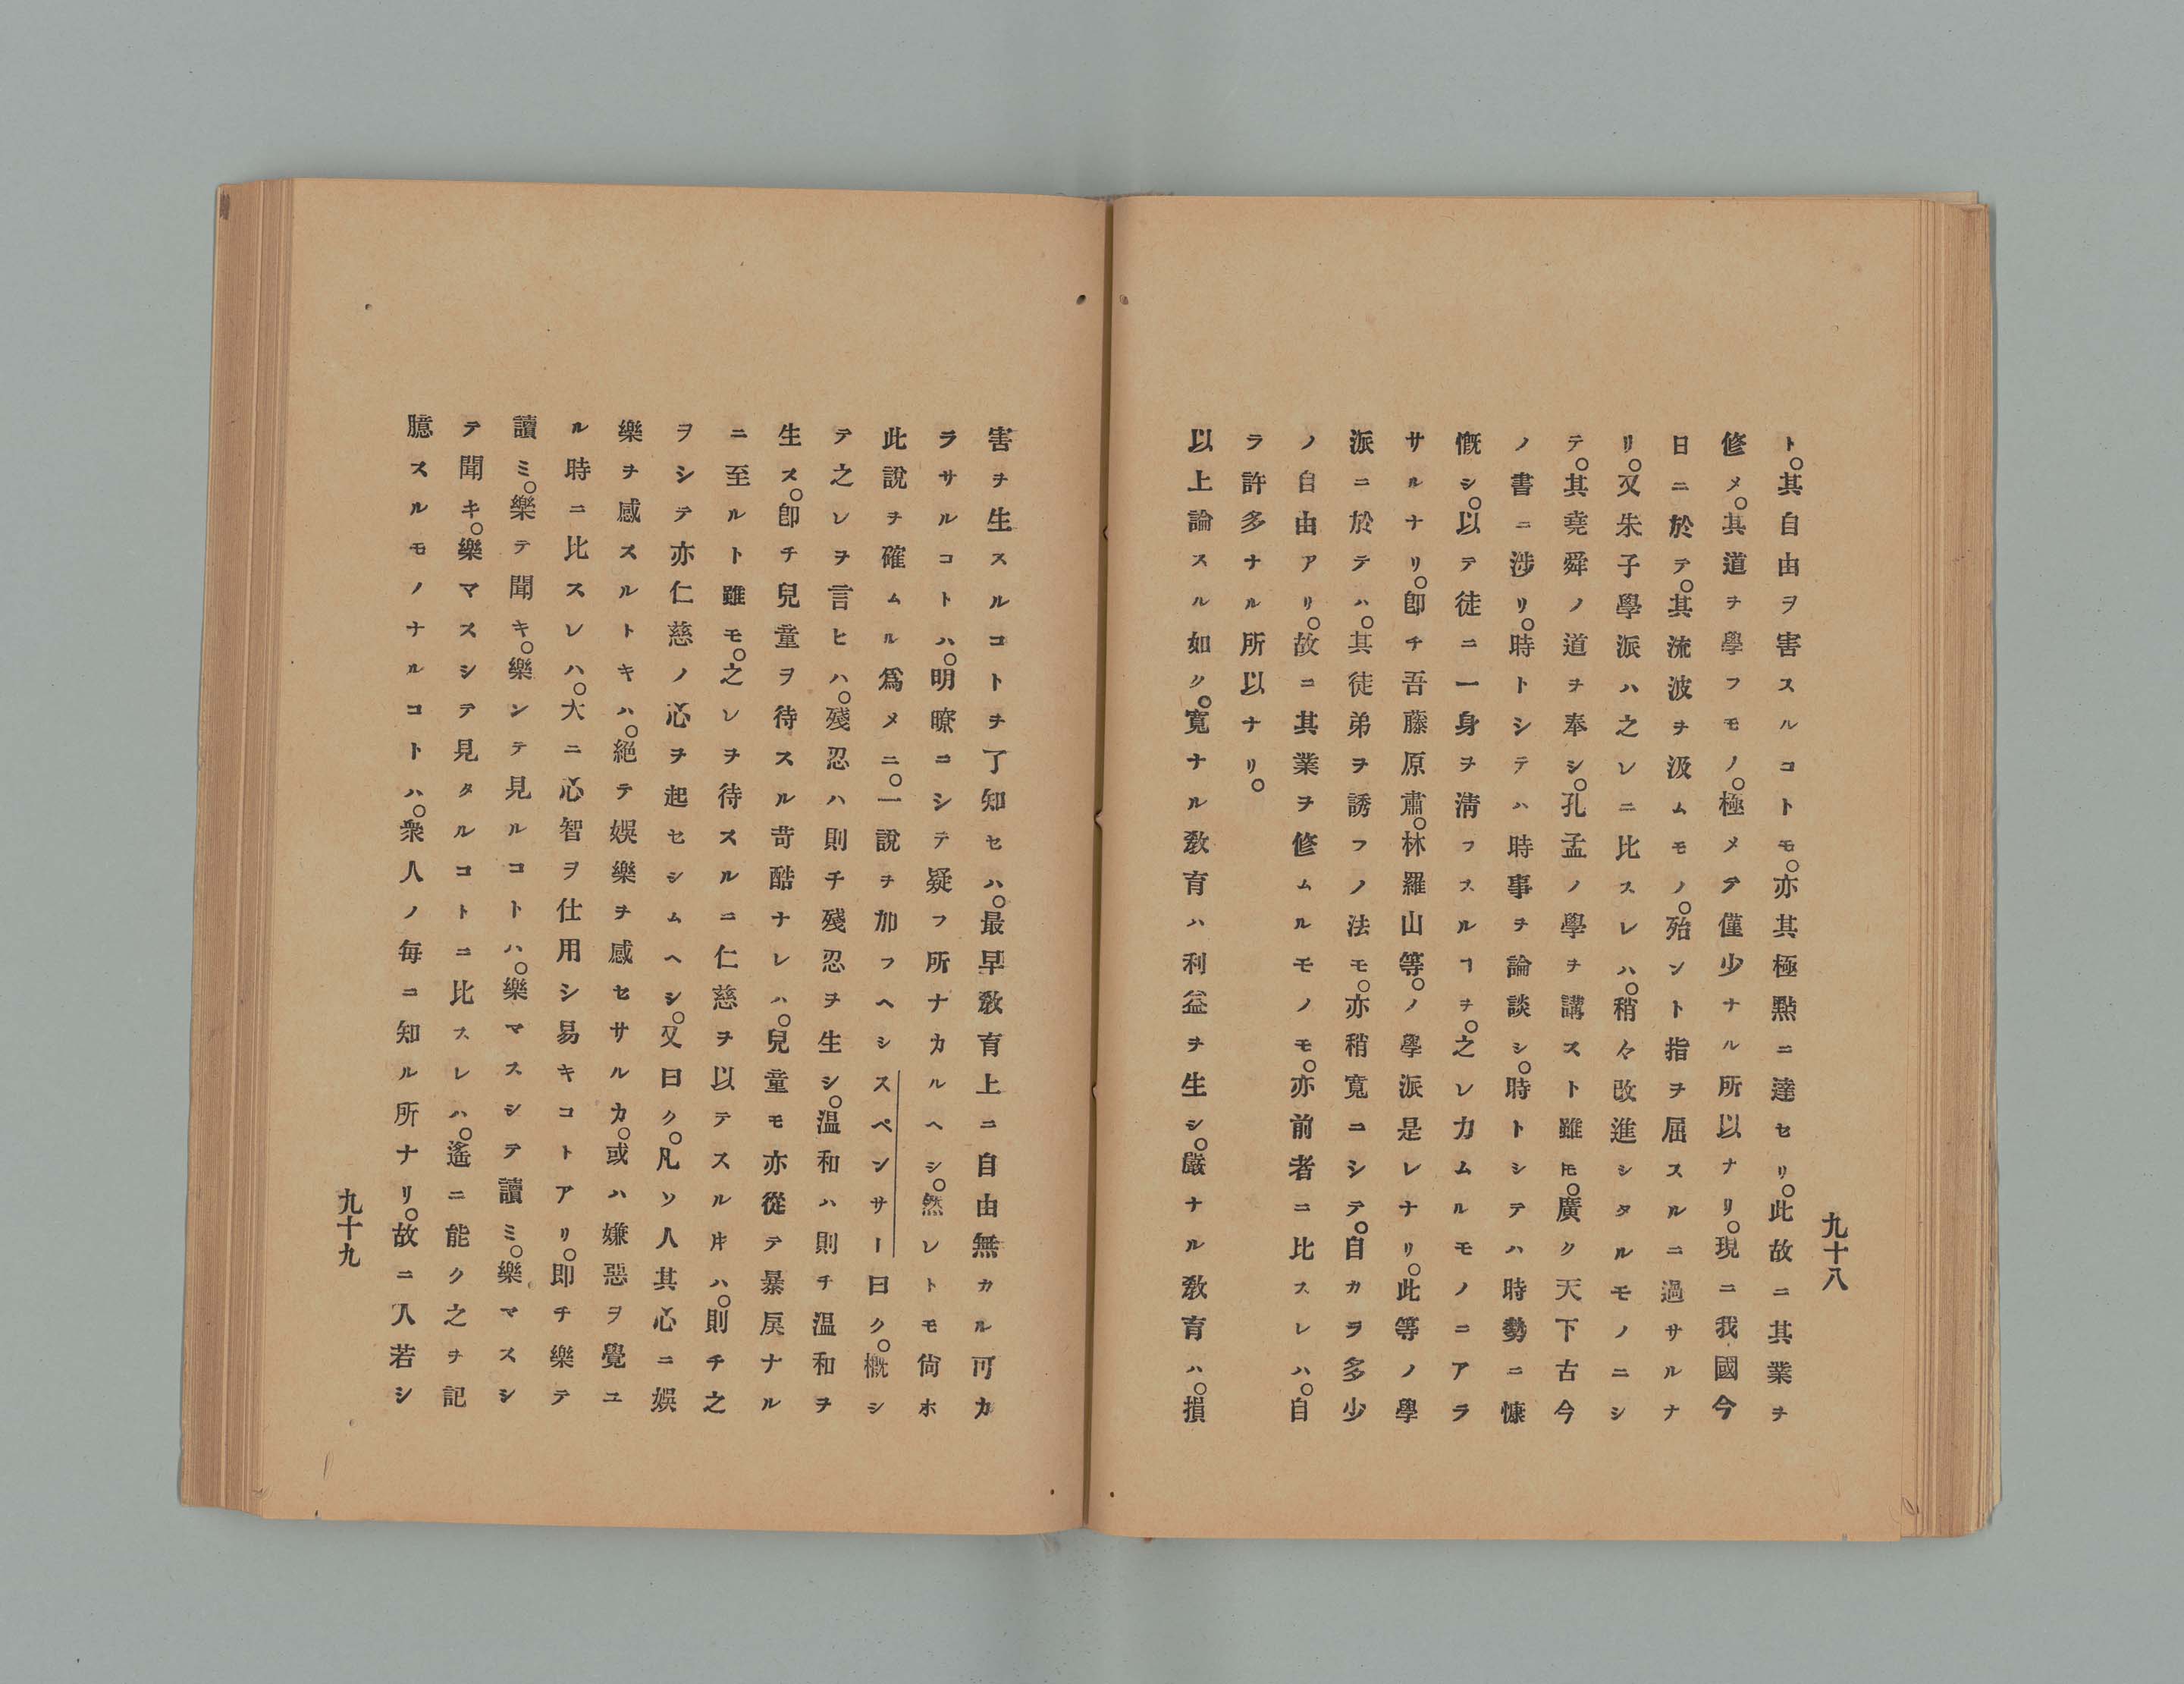 九十八
ト。其自由ヲ害スルコトモ。亦其極點ニ達セリ。此故ニ其業ヲ
修メ。其道ヲ學フモノ。極メテ僅少ナル所以ナリ。現ニ我國今
日ニ於テ。其流波ヲ汲ムモノ。殆ント指ヲ屈スルニ過サルナ
リ。又朱子學派ハ之レニ比スレハ。稍々改進シタルモノニシ
テ。其堯舜ノ道ヲ奉シ。孔孟ノ學ヲ講スト雖𪜈。廣ク天下古今
ノ書ニ涉リ。時トシテハ時事ヲ論談シ。時トシテハ時勢ニ慷
慨シ。以テ徒ニ一身ヲ淸フスルヿヲ。之レカムルモノニアラ
サルナリ。卽チ吾藤原肅。林羅山等。ノ學派是レナリ。此等ノ學
派ニ於テハ。其徒弟ヲ誘フノ法モ。亦稍寬ニシテ。自カラ多少
ノ自由アリ。故ニ其業ヲ修ムルモノモ。亦前者ニ比スレハ。自
ラ許多ナル所以ナリ。
以上論スル如ク。寬ナル敎育ハ利益ヲ生シ。嚴ナル敎育ハ。損
害ヲ生スルコトヲ了知セハ。最早敎育上ニ自由無カル可カ
ラサルコトハ。明瞭ニシテ疑フ所ナカルヘシ。然レトモ尙ホ
此說ヲ確ムル爲メニ。一說ヲ加フヘシスペンサー曰ク。槪シ
テ之レヲ言ヒハ。殘忍ハ則チ殘忍ヲ生シ。溫和ハ則チ溫和ヲ
生ス。卽チ兒童ヲ待スル苛酷ナレハ。兒童モ亦從テ暴戾ナル
ニ至ルト雖モ。之レヲ待スルニ仁慈ヲ以テスル𪜈ハ。則チ之
ヲシテ亦仁慈ノ心ヲ起セシムヘシ。又曰ク。凡ソ人其心ニ娛
樂ヲ感スルトキハ。絕テ娛樂ヲ感セサルカ。或ハ嫌惡ヲ覺ユ
ル時ニ比スレハ。大ニ心智ヲ仕用シ易キコトアリ。卽チ樂テ
讀ミ。樂テ聞キ。樂ンテ見ルコトハ。樂マスシテ讀ミ。樂マスシ
テ聞キ。樂マスシテ見タルコトニ比スレハ。遙ニ能ク之ヲ記
臆スルモノナルコトハ。衆人ノ每ニ知ル所ナリ。故ニ人若シ
九十九